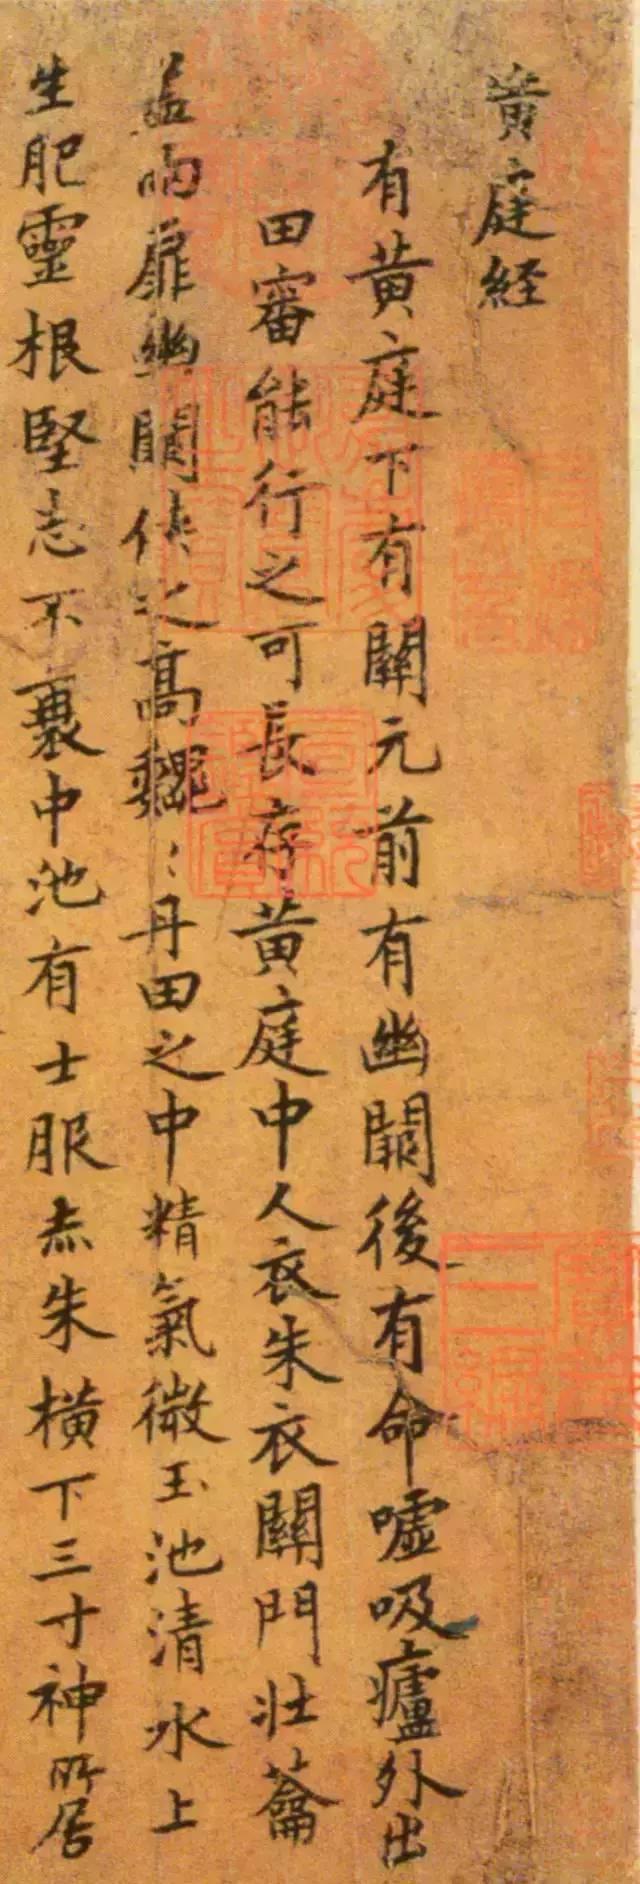 黄庭経
有黄庭下有關元前有幽闕後有命噓吸廬外出
田審能行之可長存黄庭中人衣朱衣關門壮蘥
盖兩扉幽闕侠之高巍〻丹田之中精氣微玉池清水上
生肥靈根堅志不衰中池有士服赤朱横下三寸神所居